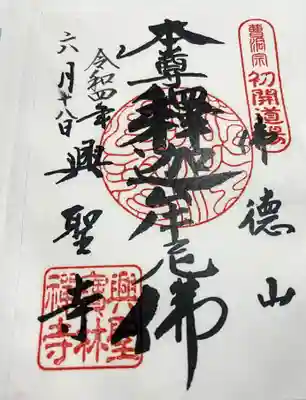 曹洞宗
初開道場
佛德山
本尊釋迦牟尼佛
興聖寺
令和四年
六月十八日
興聖
寶林
禪寺